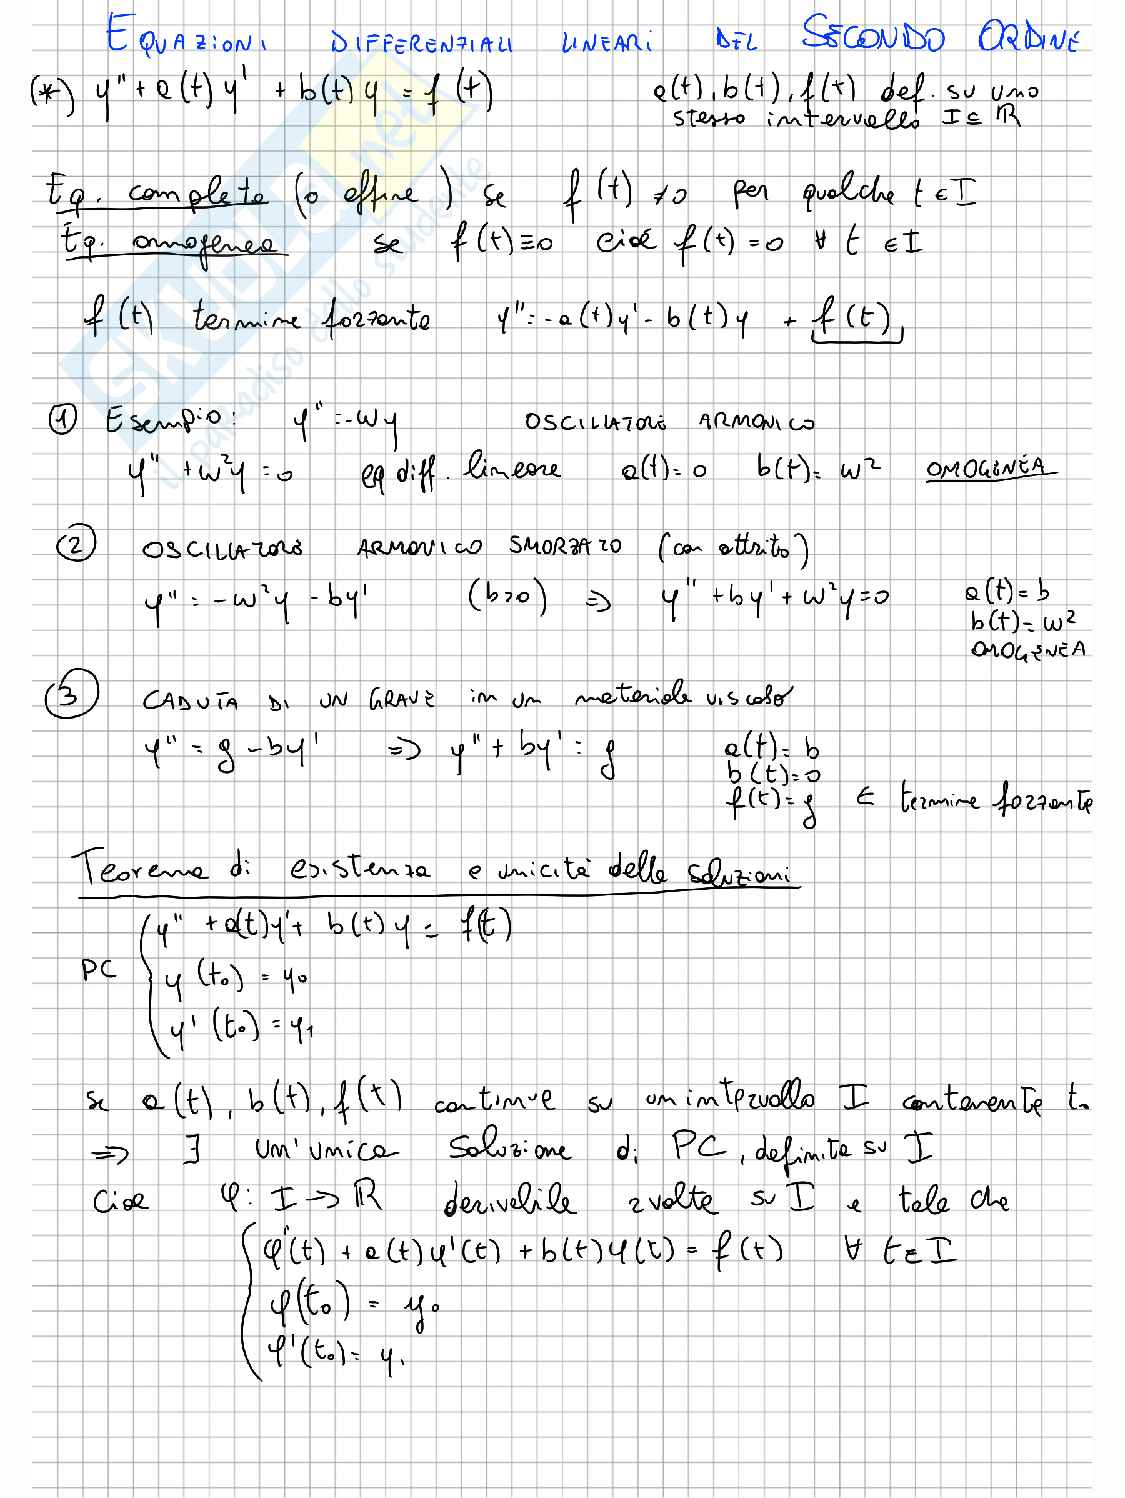 EQUAZIONI DIFFERENZIALI LINEARI DEL SECONDO ORDINE
(*) y'' + a(t) y' + b(t) y = f(t) a(t), b(t), f(t) def. su uno
stesso intervallo I ⊆ ℝ
Eq. completa (o affine) se f(t) ≠ 0 per qualche t ∈ I
Eq. omogenea se f(t) ≡ 0 cioè f(t) = 0 ∀ t ∈ I
f(t) termine forzante y'' = -a(t)y' - b(t)y + f(t)
① Esempio: y'' = -ωy OSCILLATORE ARMONICO
y'' + ω²y = 0 eq diff. lineare a(t) = 0 b(t) = ω² OMOGENEA
② OSCILLATORE ARMONICO SMORZATO (con attrito)
y'' = -ω²y - by' (b>0) ⇒ y'' + by' + ω²y = 0 a(t) = b
b(t) = ω²
OMOGENEA
③ CADUTA DI UN GRAVE in un materiale viscoso
y'' = g - by' ⇒ y'' + by' = g a(t) = b
b(t) = 0
f(t) = g ∈ termine forzante
Teorema di esistenza e unicità delle soluzioni
y'' + a(t)y' + b(t)y = f(t)
PC y(t₀) = y₀
y'(t₀) = y₁
se a(t), b(t), f(t) continue su un intervallo I contenente t₀
⇒ ∃ un'unica soluzione di PC, definita su I
Cioè φ: I → ℝ derivabile 2 volte su I e tale che
φ''(t) + a(t)φ'(t) + b(t)φ(t) = f(t) ∀ t ∈ I
φ(t₀) = y₀
φ'(t₀) = y₁
SKUOLA.net
il paradiso dello studente